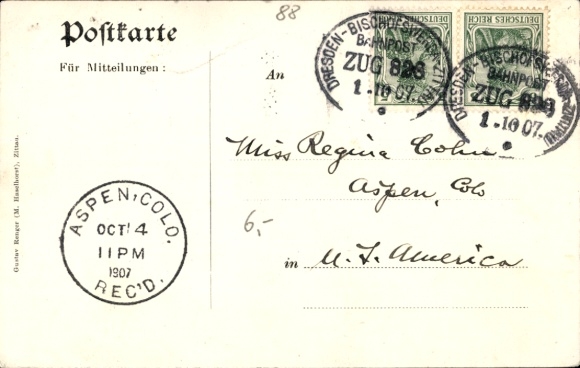 88
Postkarte
Für Mitteilungen:
An
DEUTSCHES REICH
DEUTSCHES REICH
DRESDEN-BISCHOFSWERDA-ZITTAU
BAHNPOST
ZUG 823
1-10 07.
DRESDEN-BISCHOFSWERDA-ZITTAU
BAHNPOST
ZUG
1-10 07.
Miss Regina Cohn
Aspen, Colo
6,-
in U. S. America
ASPEN, COLO.
OCT 14
11 PM
1907
REC'D.
Gustav Renger (M. Haselhorst), Zittau.